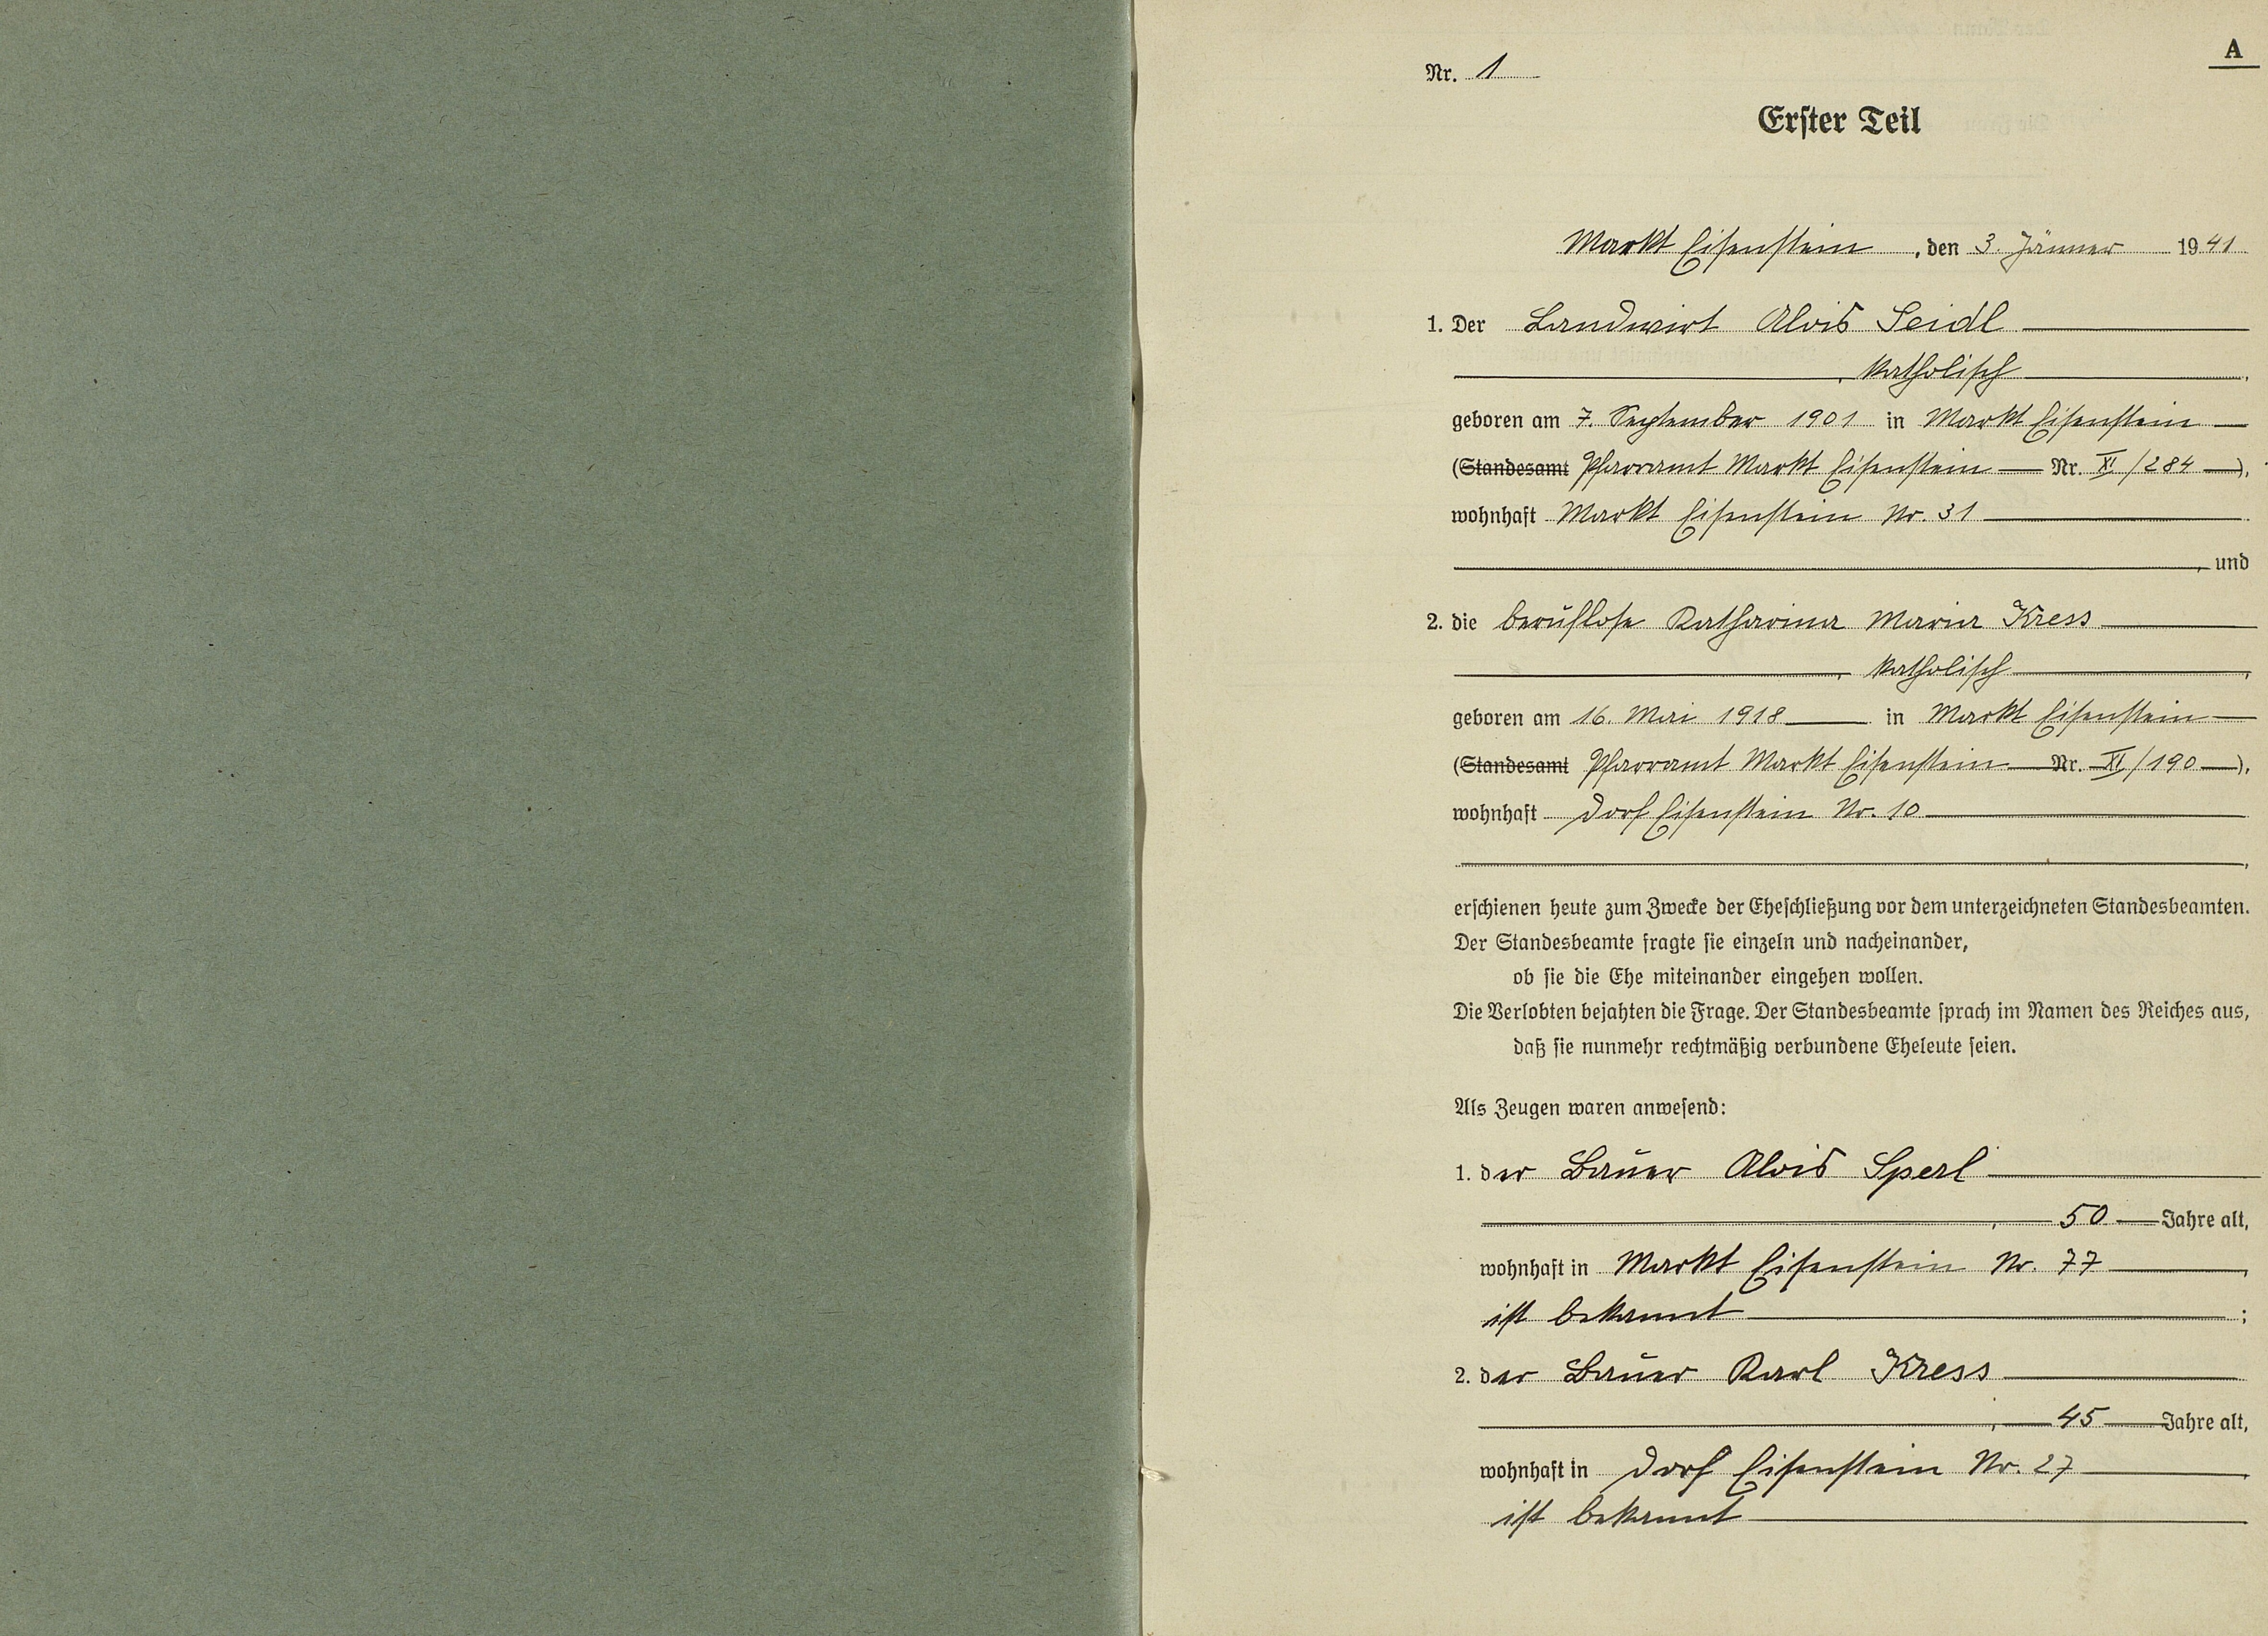 A
Nr. 1
Erster Teil
Markt Eisenstein, den 3. Jänner 1941
1. Der Landwirt Alois Seidl
, katholisch,
geboren am 7. September 1901 in Markt Eisenstein
(Standesamt Pfarramt Markt Eisenstein Nr. XI/284),
wohnhaft Markt Eisenstein Nr. 31
, und
2. die berufslose Katharina Maria Kress
, katholisch,
geboren am 16. Mai 1918 in Markt Eisenstein
(Standesamt Pfarramt Markt Eisenstein Nr. XI/190),
wohnhaft Dorf Eisenstein Nr. 10
,
erschienen heute zum Zwecke der Eheschließung vor dem unterzeichneten Standesbeamten.
Der Standesbeamte fragte sie einzeln und nacheinander,
ob sie die Ehe miteinander eingehen wollen.
Die Verlobten bejahten die Frage. Der Standesbeamte sprach im Namen des Reiches aus,
daß sie nunmehr rechtmäßig verbundene Eheleute seien.
Als Zeugen waren anwesend:
1. der Bauer Alois Sperl
, 50 Jahre alt,
wohnhaft in Markt Eisenstein Nr. 77,
ist bekannt;
2. der Bauer Karl Kress
, 45 Jahre alt,
wohnhaft in Dorf Eisenstein Nr. 27,
ist bekannt